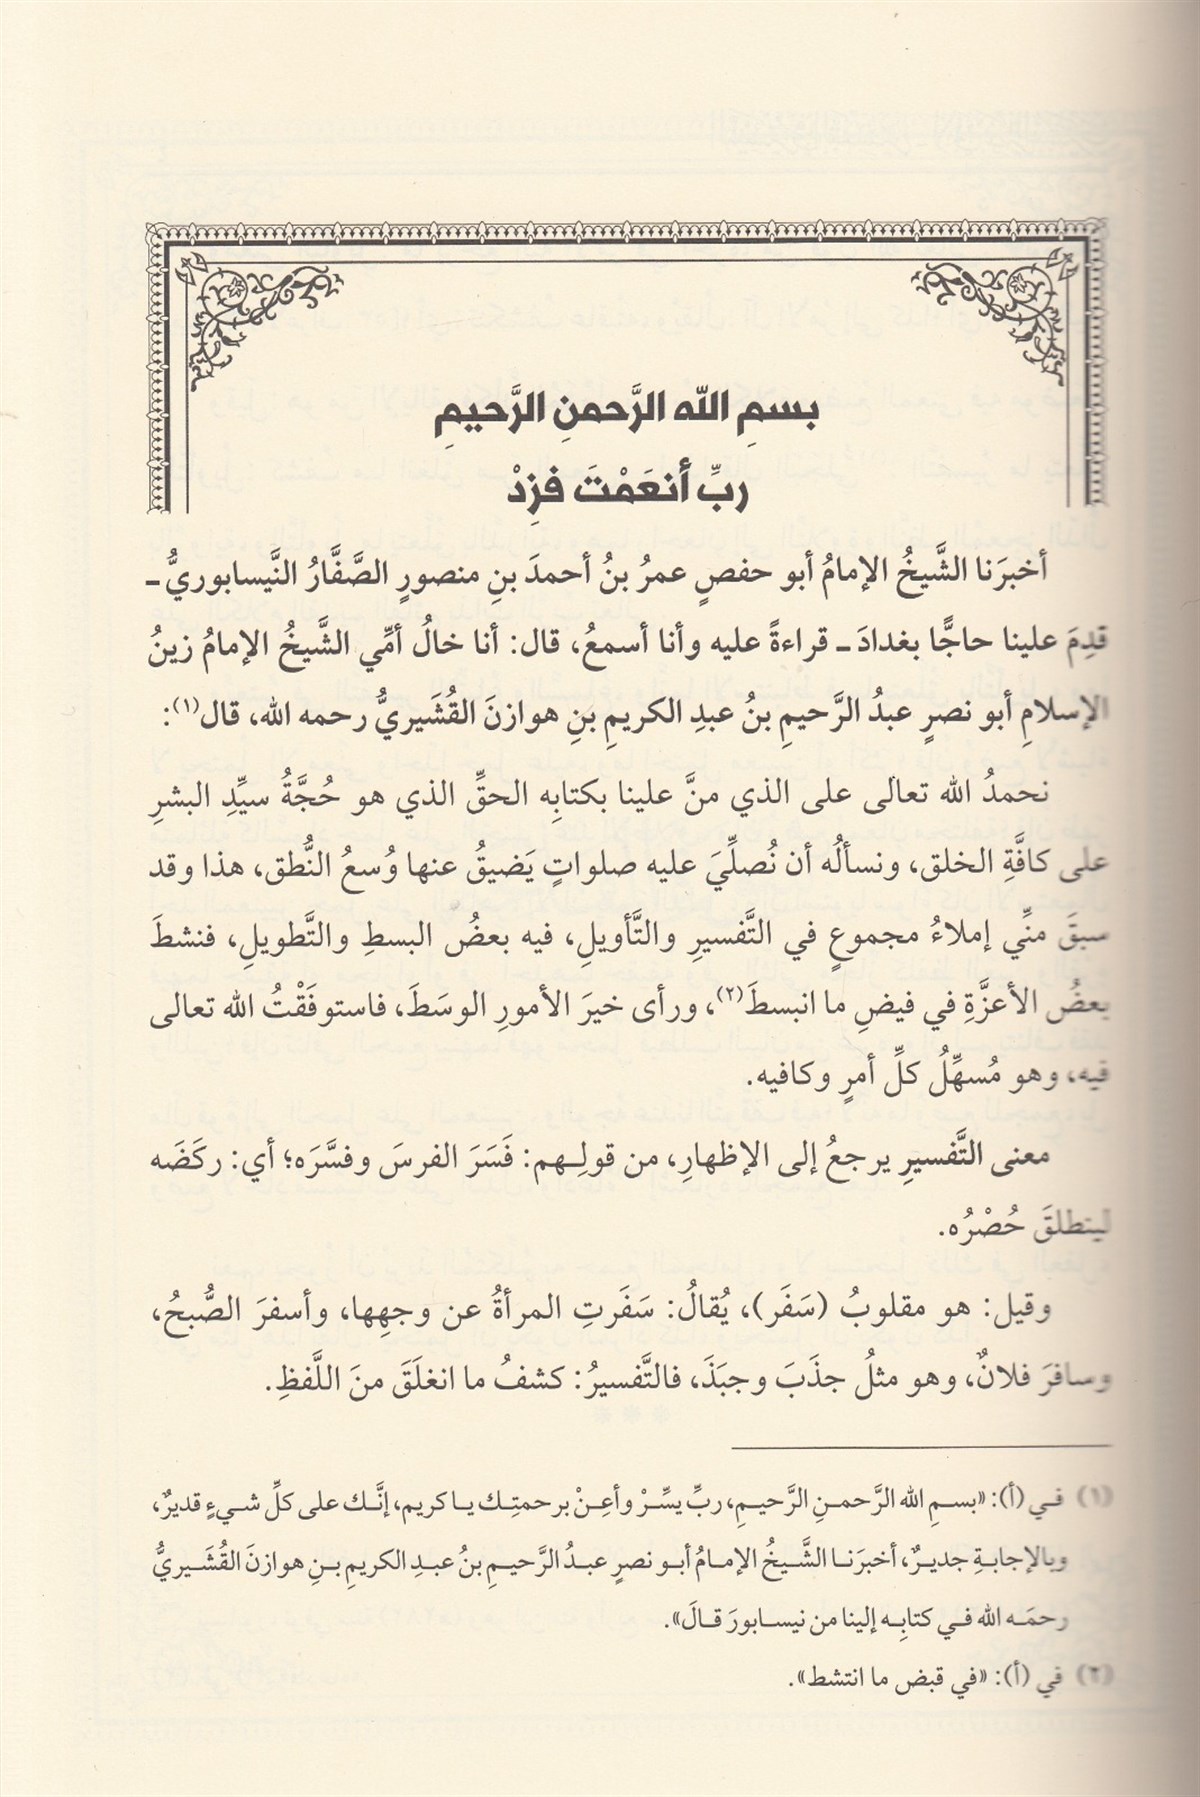 بسمِ الله الرَّحمنِ الرَّحيمِ
ربِّ أنعَمْتَ فزِدْ
أخبرَنا الشَّيخُ الإمامُ أبو حفصٍ عمرُ بنُ أحمدَ بنِ منصورٍ الصَّفَّارُ النَّيسابوريُّ ـ
قدِمَ علينا حاجًّا بغدادَ ـ قراءةً عليه وأنا أسمعُ، قال: أنا خالُ أمِّي الشَّيخُ الإمامُ زينُ
الإسلامِ أبو نصرٍ عبدُ الرَّحيمِ بنُ عبدِ الكريمِ بنِ هوازنَ القُشَيريُّ رحمه الله، قال(١):
نحمدُ الله تعالى على الذي منَّ علينا بكتابِه الحقِّ الذي هو حُجَّةُ سيِّدِ البشرِ
على كافَّةِ الخلق، ونسألُه أن نُصلِّيَ عليه صلواتٍ يَضيقُ عنها وُسعُ النُّطق، هذا وقد
سبقَ منِّي إملاءُ مجموعٍ في التَّفسيرِ والتَّأويلِ، فيه بعضُ البسطِ والتَّطويلِ، فنشطَ
بعضُ الأعزَّةِ في فيضِ ما انبسطَ(٢)، ورأى خيرَ الأمورِ الوسَطَ، فاستوفَقْتُ الله تعالى
فيه، وهو مُسهِّلُ كلِّ أمرٍ وكافيه.
معنى التَّفسيرِ يرجعُ إلى الإظهارِ، من قولِهم: فَسَرَ الفرسَ وفسَّرَه؛ أي: ركَضَه
لينطلقَ حُصْرُه.
وقيل: هو مقلوبُ (سَفَر)، يُقالُ: سَفَرتِ المرأةُ عن وجهِها، وأسفرَ الصُّبحُ،
وسافرَ فلانٌ، وهو مثلُ جذَبَ وجبَذَ، فالتَّفسيرُ: كشفُ ما انغلَقَ منَ اللَّفظِ.
(١) في (أ): «بسمِ الله الرَّحمنِ الرَّحيمِ، ربِّ يسِّرْ وأعِنْ برحمتِك يا كريم، إنَّك على كلِّ شيءٍ قديرٌ،
وبالإجابةِ جديرٌ، أخبرَنا الشَّيخُ الإمامُ أبو نصرٍ عبدُ الرَّحيمِ بنُ عبدِ الكريمِ بنِ هوازنَ القُشَيريُّ
رحمَه الله في كتابِه إلينا من نيسابورَ قالَ».
(٢) في (أ): «في قبض ما انتشط».